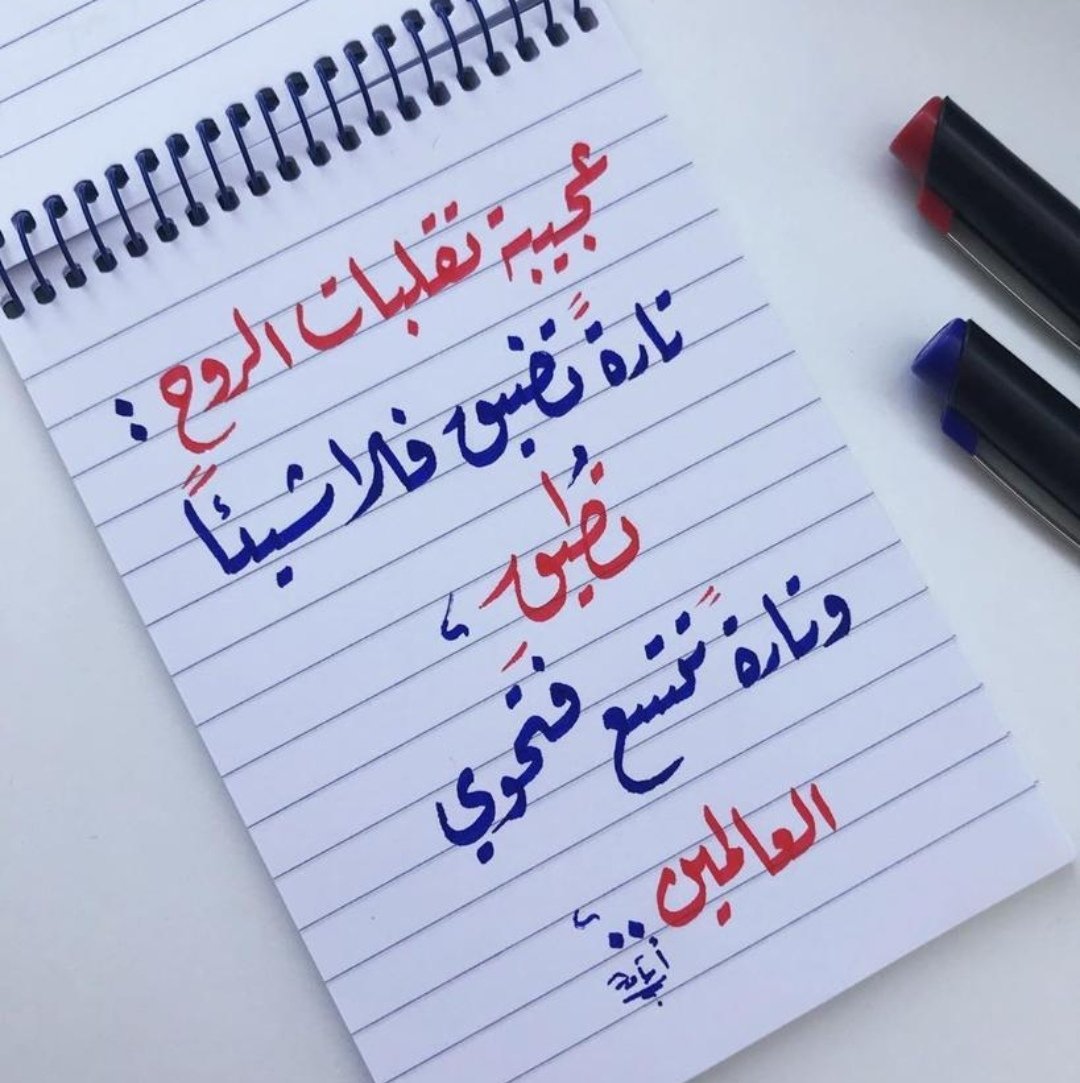 عجيبة تقلبات الروح :
تارةً تضيق فلا شيئاً
تُطيق ،
وتارةً تتسع فتَحوي
العالمين ..،